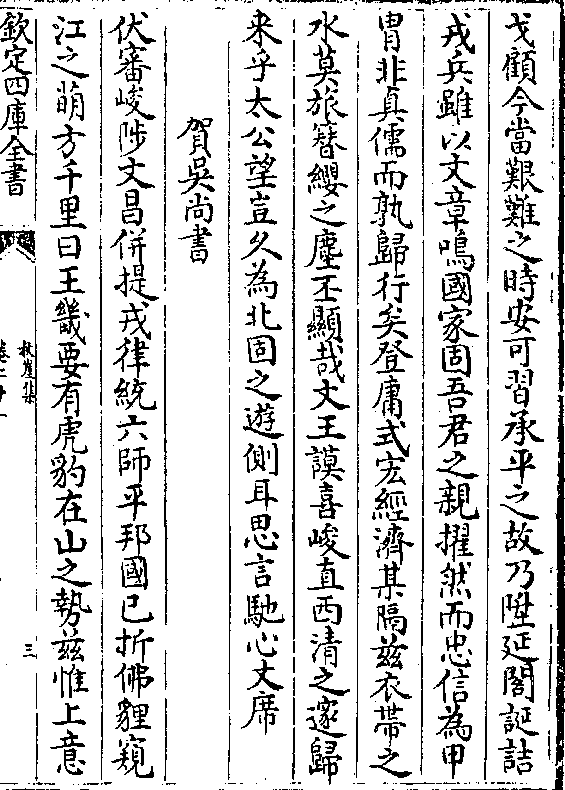 戈顧今當艱難之時安可習承平之故乃陞延閣誕詰
戎兵雖以文章鳴國家固吾君之親擢然而忠信為甲
胄非真儒而孰歸行矣登庸式宏經濟某隔兹衣帶之
水莫旅簪纓之塵丕顯哉文王謨喜峻直西清之邃歸
来乎太公望豈久為北固之遊側耳思言馳心文席
賀吳尚書
伏審峻陟文昌併提戎律統六師平邦國已折佛貍窺
江之萌方千里曰王畿要有虎豹在山之勢兹惟上意
欽定四庫全書
秋崖集
三